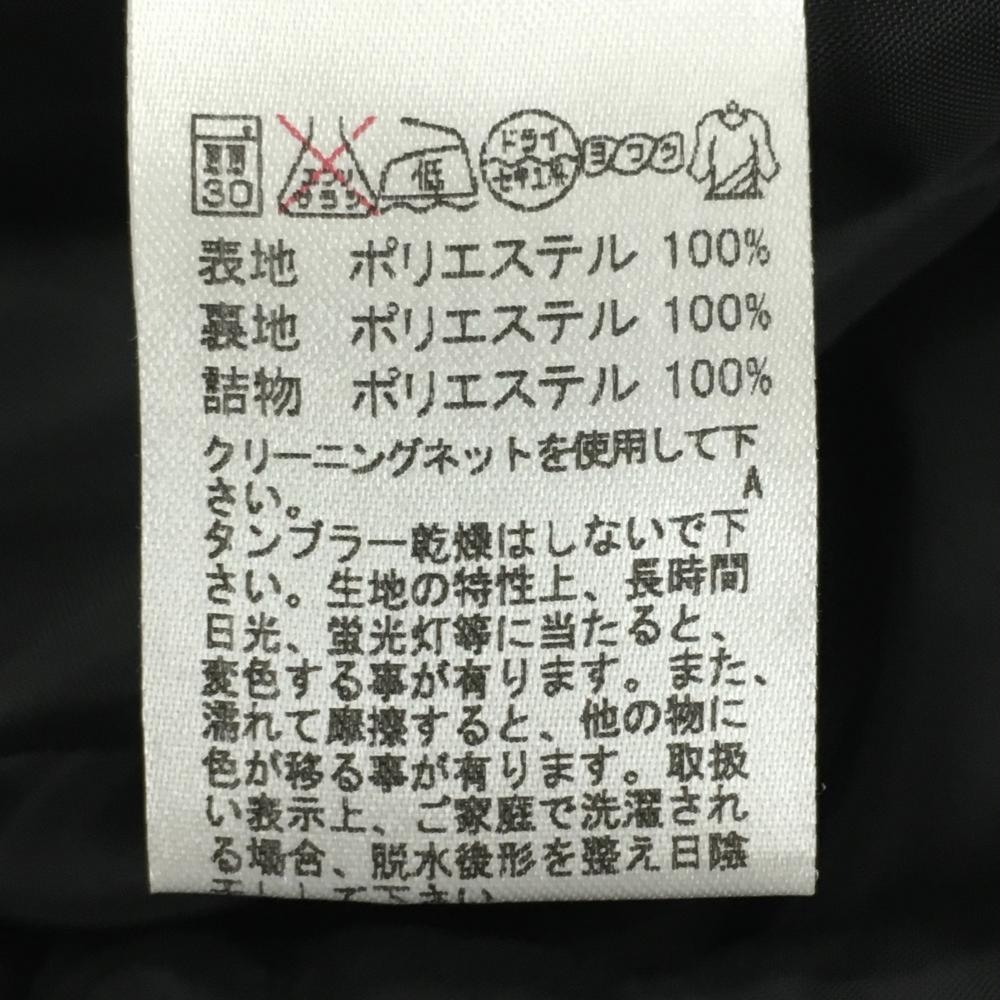 30
エンソ
サラシ
低
ドライ
セキユ系
ヨワク
表地 ポリエステル 100%
裏地 ポリエステル 100%
詰物 ポリエステル 100%
クリーニングネットを使用して下
A
さい。
タンブラー乾燥はしないで下
さい。生地の特性上、長時間
日光、蛍光灯等に当たると、
変色する事が有ります。また、
濡れて摩擦すると、他の物に
色が移る事が有ります。取扱
い表示上、ご家庭で洗濯され
る場合、脱水後形を整え日陰
干しして下さい